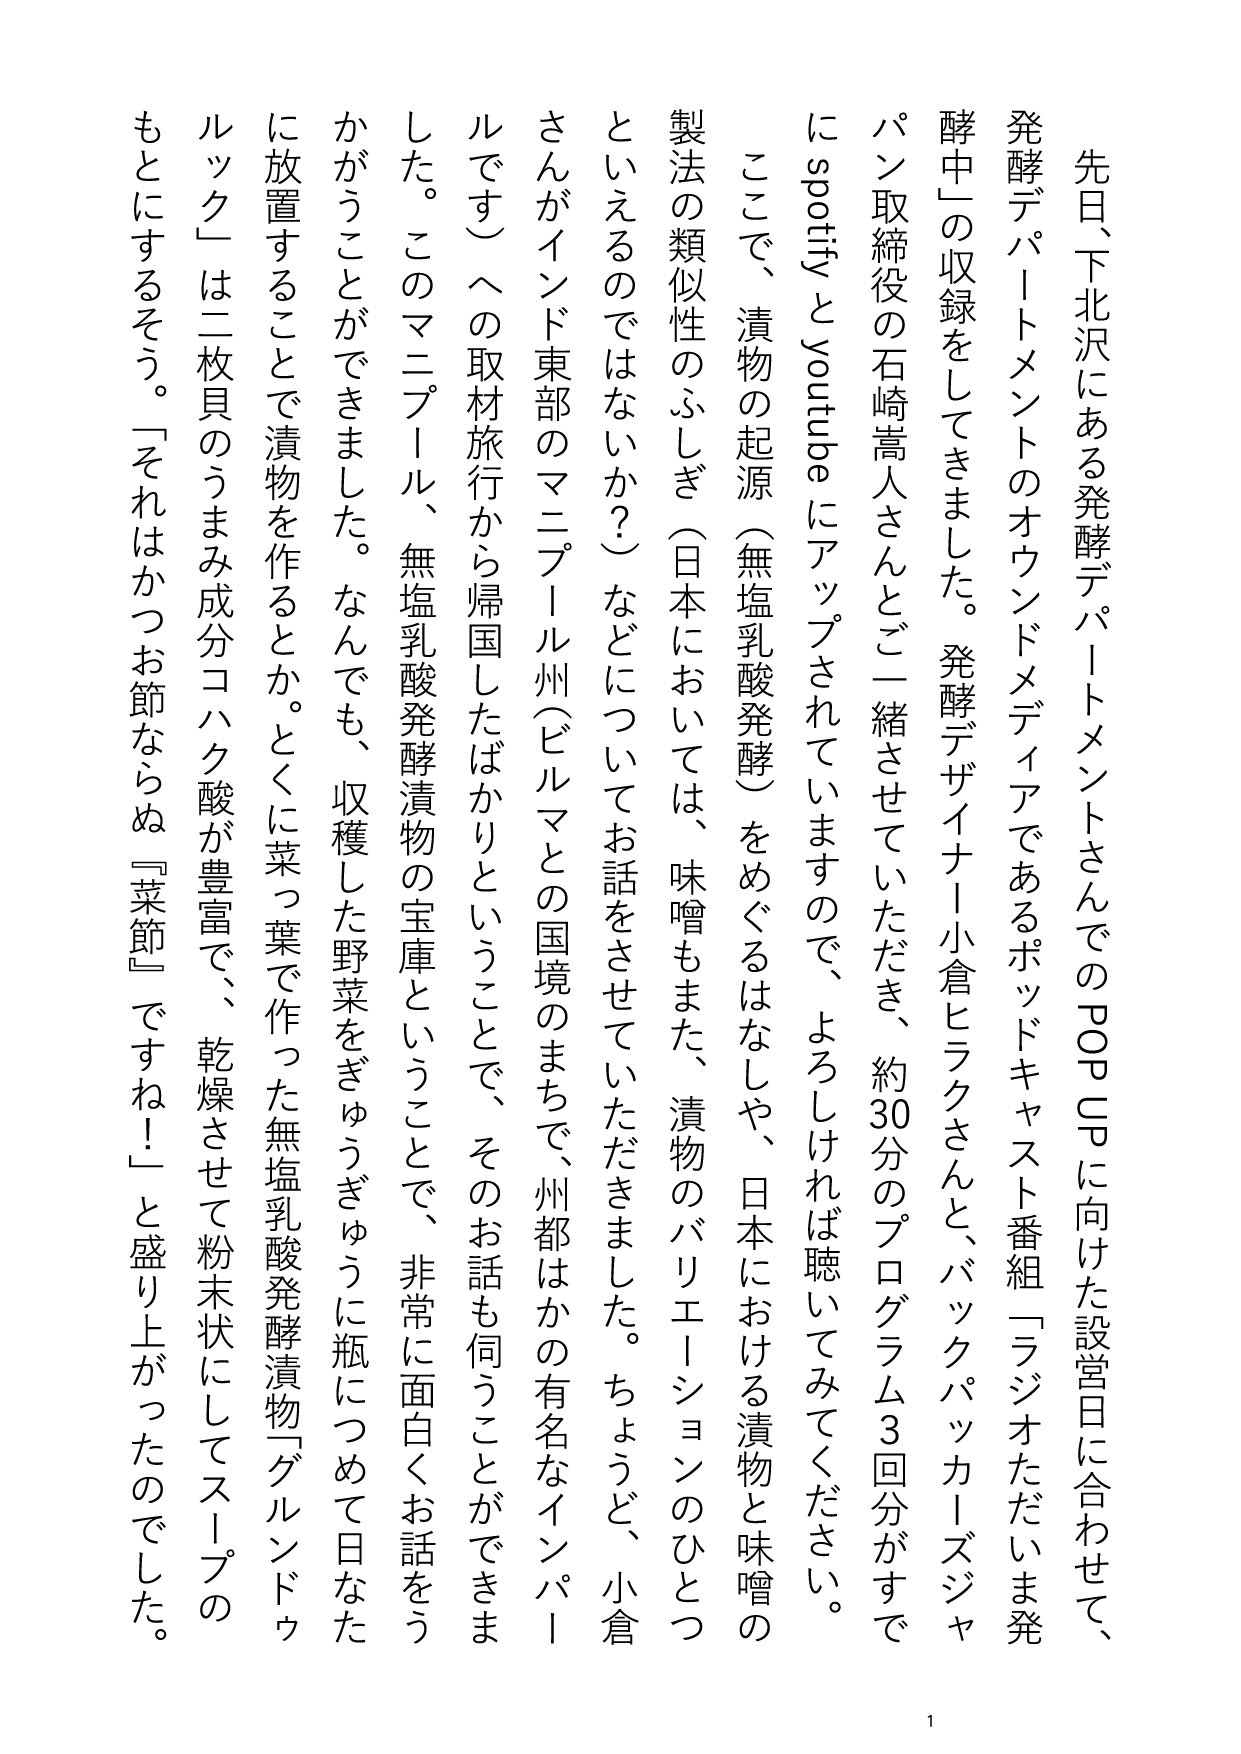 先日、下北沢にある発酵デパートメントさんでのPOP UPに向けた設営日に合わせて、
発酵デパートメントのオウンドメディアであるポッドキャスト番組「ラジオただいま発
酵中」の収録をしてきました。発酵デザイナー小倉ヒラクさんと、バックパッカーズジャ
パン取締役の石崎嵩人さんとご一緒させていただき、約30分のプログラム3回分がすで
にspotifyとyoutubeにアップされていますので、よろしければ聴いてみてください。
ここで、漬物の起源（無塩乳酸発酵）をめぐるはなしや、日本における漬物と味噌の
製法の類似性のふしぎ（日本においては、味噌もまた、漬物のバリエーションのひとつ
といえるのではないか？）などについてお話をさせていただきました。ちょうど、小倉
さんがインド東部のマニプール州（ビルマとの国境のまちで、州都はかの有名なインパー
ルです）への取材旅行から帰国したばかりということで、そのお話も伺うことができま
した。このマニプール、無塩乳酸発酵漬物の宝庫ということで、非常に面白くお話をう
かがうことができました。なんでも、収穫した野菜をぎゅうぎゅうに瓶につめて日なた
に放置することで漬物を作るとか。とくに菜っ葉で作った無塩乳酸発酵漬物「グルンドゥ
ルック」は二枚貝のうまみ成分コハク酸が豊富で、、乾燥させて粉末状にしてスープの
もとにするそう。「それはかつお節ならぬ『菜節』ですね！」と盛り上がったのでした。
1